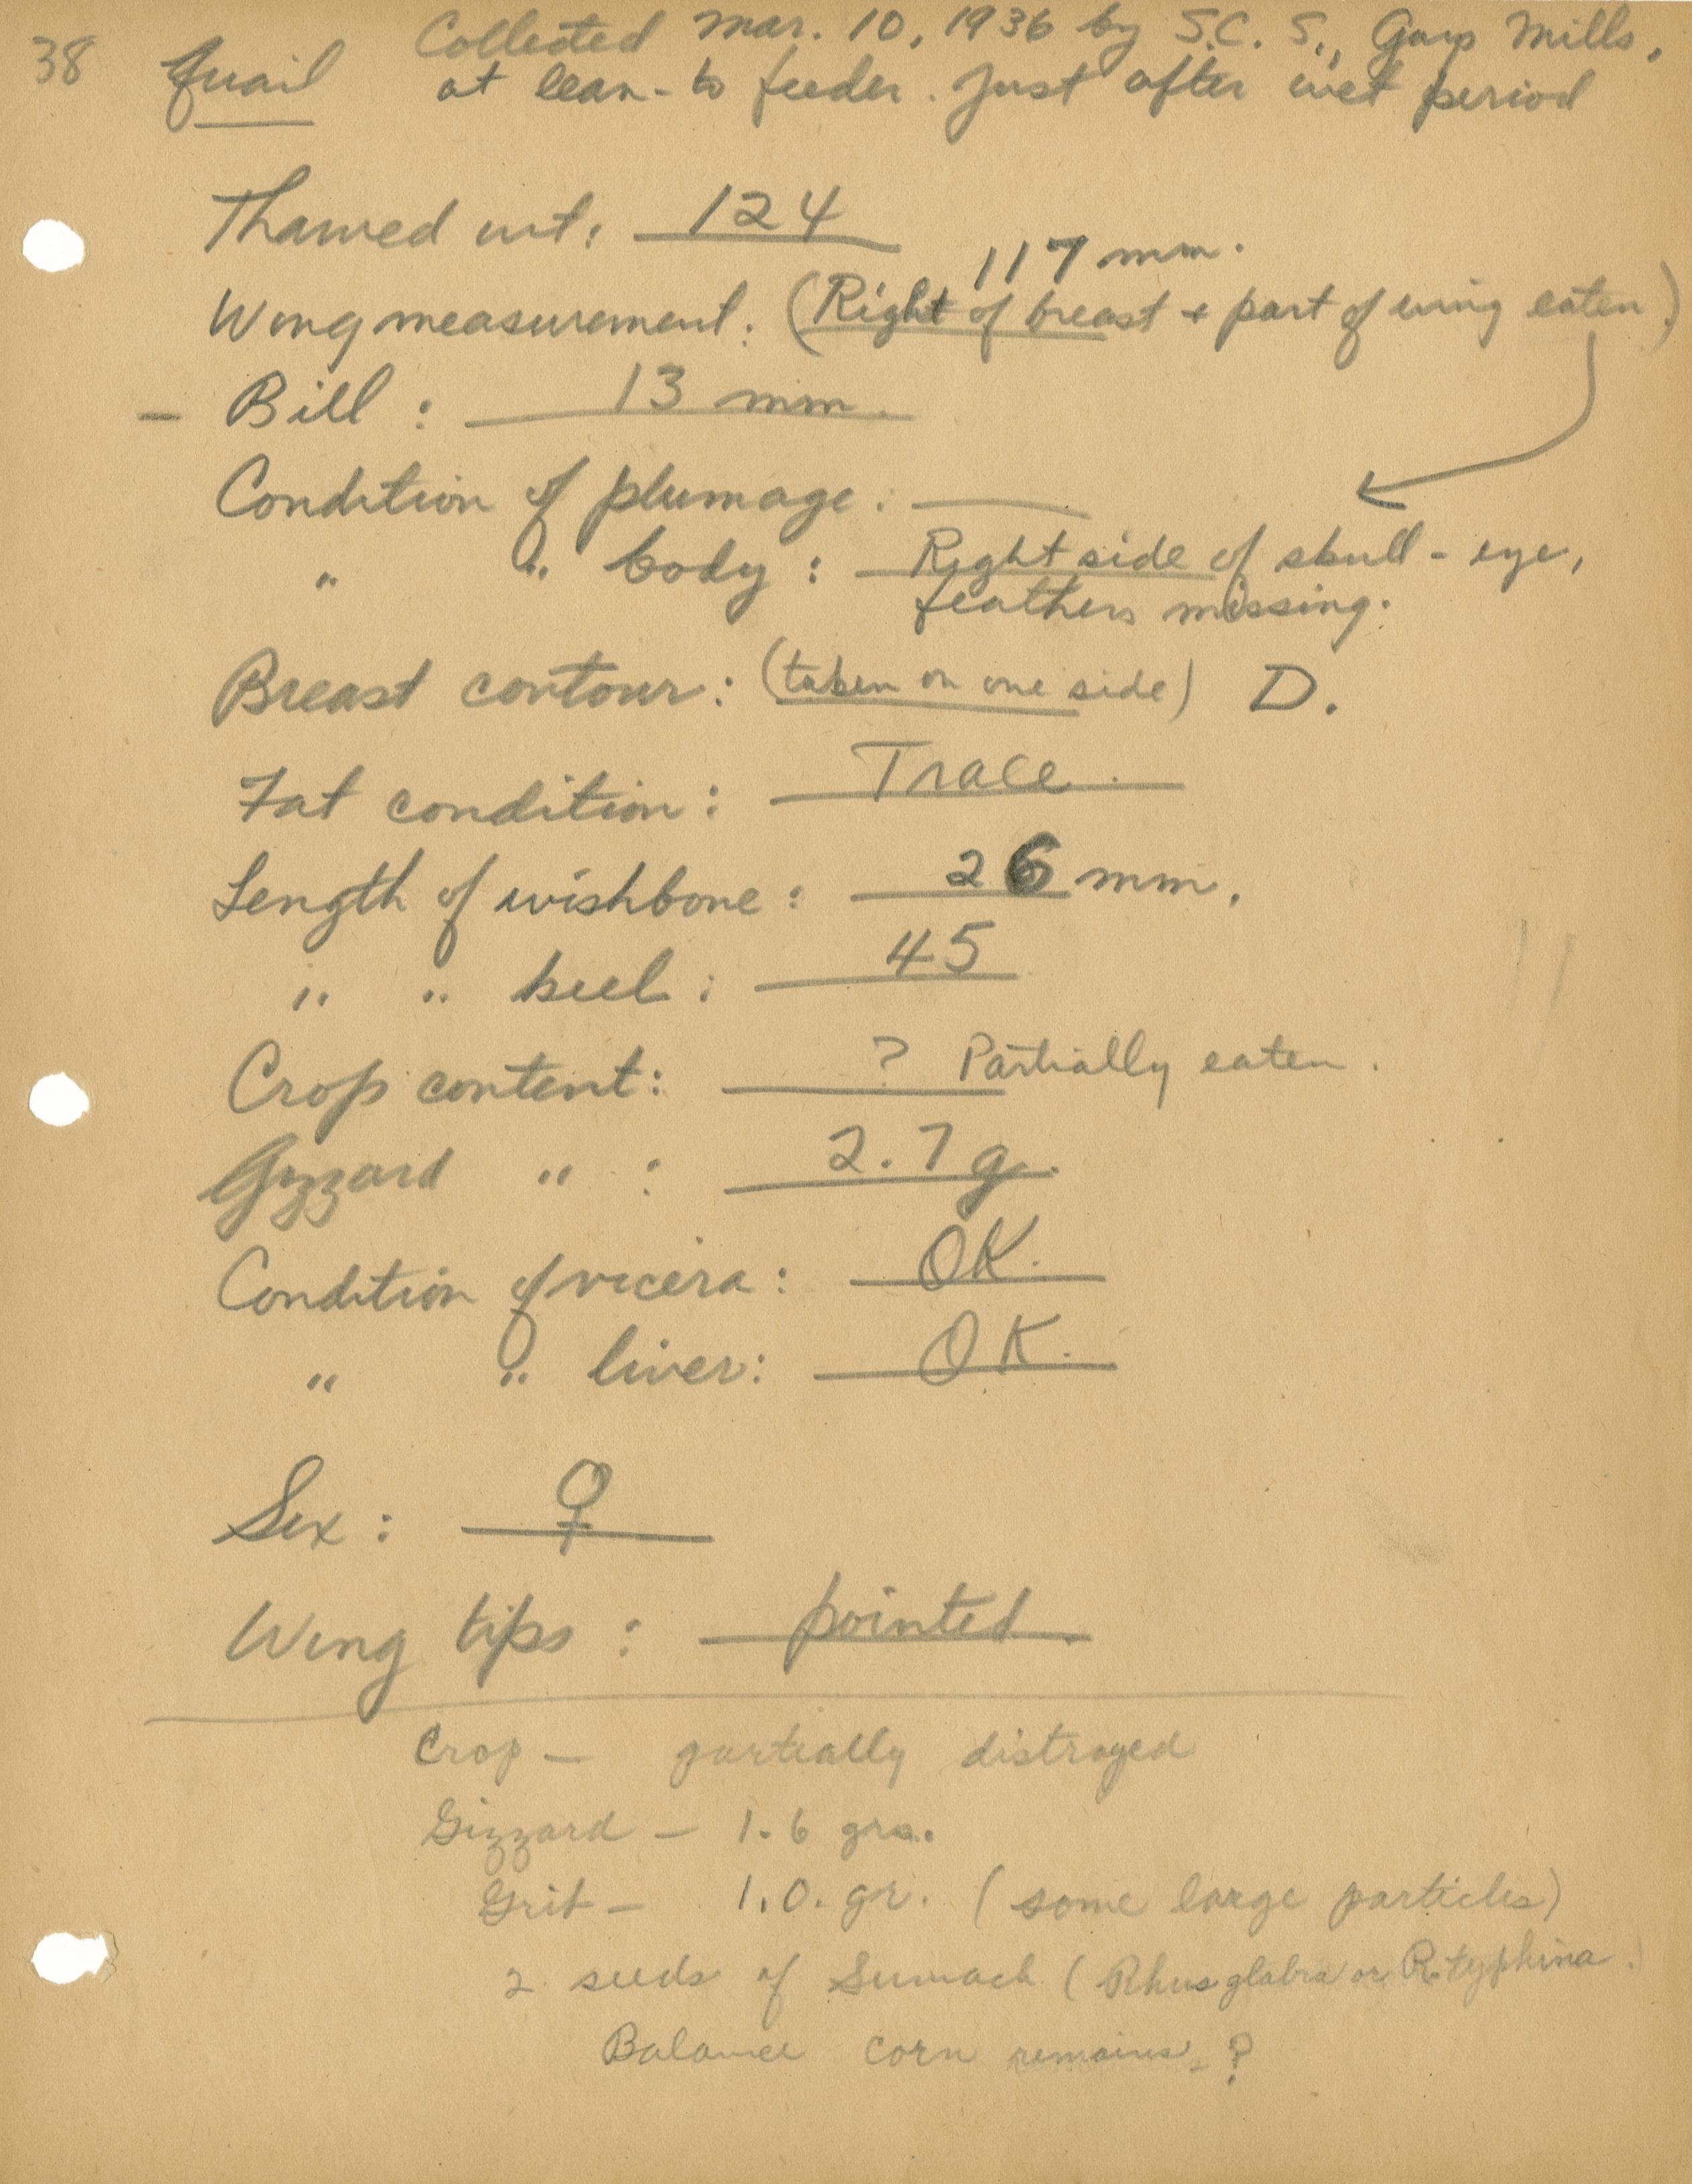 38 Quail Collected Mar. 10, 1936 by S.C.S., Gays Mills,
at lean-to feeder. Just after wet period
Thawed wt: 124
117 mm.
Wing measurement: (Right of breast + part of wing eaten.)
- Bill: 13 mm.
Condition of plumage:
" " body: Right side of skull - eye,
feathers missing.
Breast contour: (taken on one side) D.
Fat condition: Trace.
Length of wishbone: 26 mm.
" " keel: 45
Crop content: ? Partially eaten.
Gizzard " : 2.7 g.
Condition of vicera: OK.
" " liver: OK.
Sex: ♀
Wing tips: pointed
Crop — partially distroyed
Gizzard — 1.6 grs.
Grit — 1.0. gr. (some large particles)
2 seeds of Sumach (Rhus glabra or R. typhina.)
Balance corn remains - ?